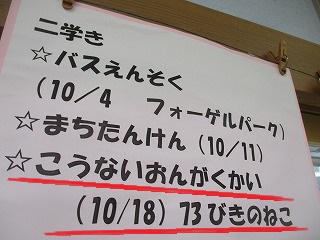 二学き
☆バスえんそく
(10/4 フォーゲルパーク)
☆まちたんけん(10/11)
☆こうないおんがくかい
(10/18)73びきのねこ